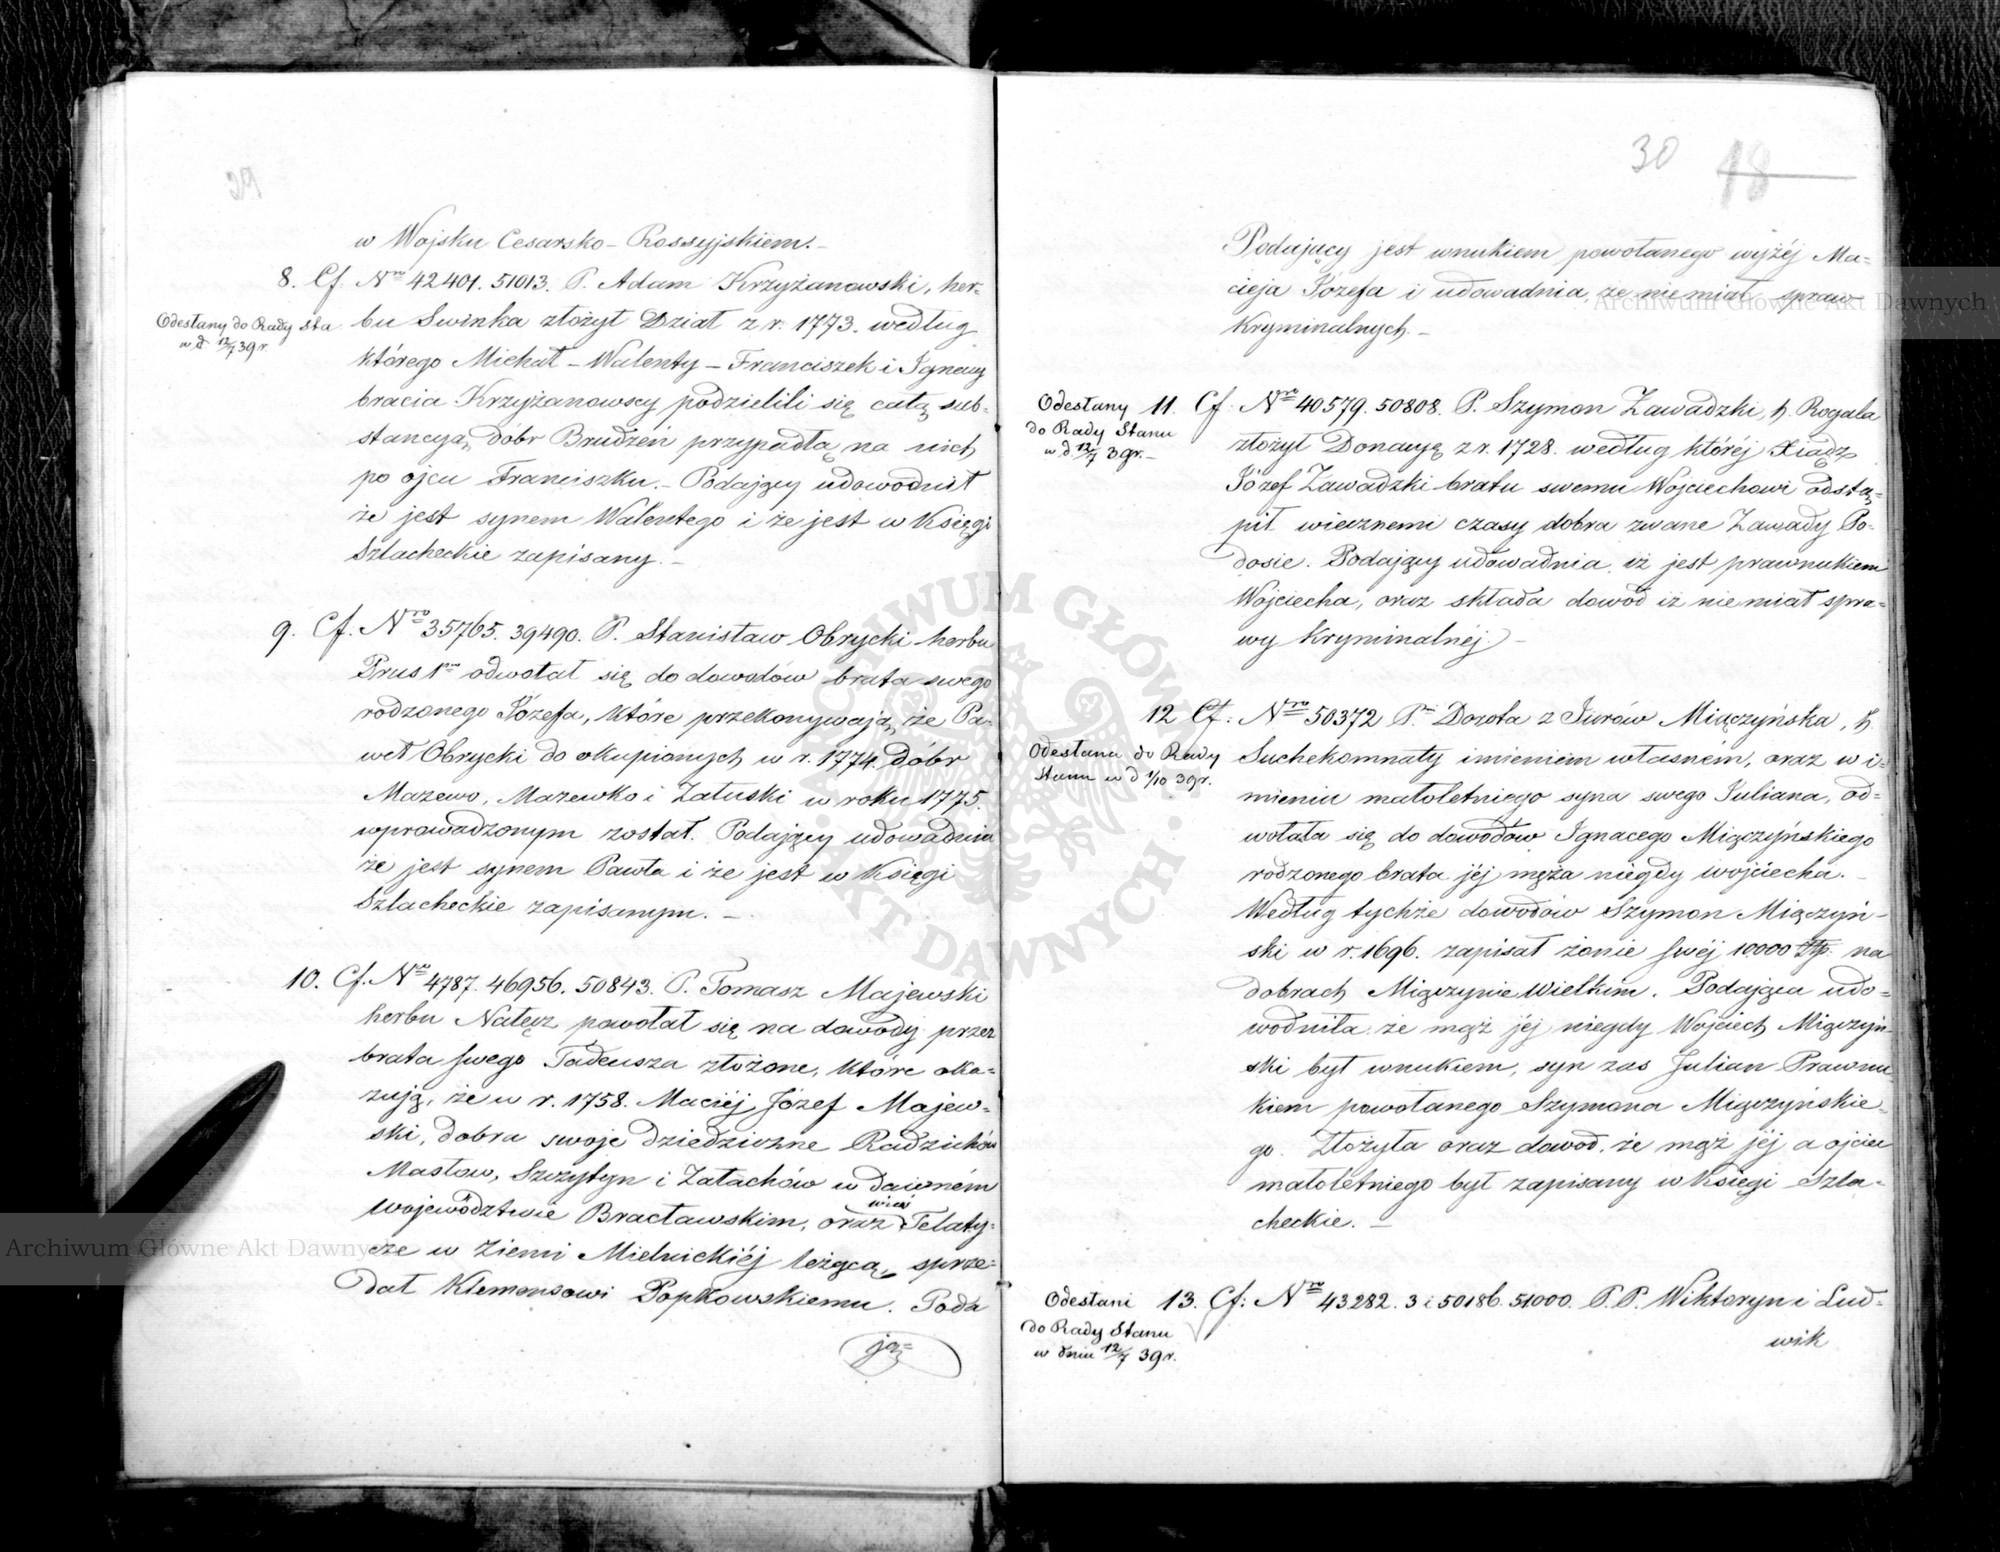 29
w Wojsku Cesarsko-Rossyjskiem.-
8. Cf. Nro 42401. 51013. P. Adam Krzyżanowski, her=
Odesłany do Rady Sta
w d. 12/7 39 r.
bu Swinka złożył Dział z r. 1773. według
którego Michał - Walenty - Franciszek i Ignacy
bracia Krzyżanowscy podzielili się całą sub=
stancyą dobr Brudzeń przypadłą na nich
po ojcu Franciszku.- Podający udowodnił
że jest synem Walentego i że jest w Księgi
Szlacheckie zapisany.-
9. Cf. Nro 35765. 39490. P. Stanisław Obrycki herbu
Prus 1mo odwołał się do dowodów brata swego
rodzonego Józefa, które przekonywają, że Pa=
weł Obrycki do okupionych w r. 1774. Dóbr
Mazewo, Mazewko i Załuski w roku 1775.
wprowadzonym został. Podający udowadnia
że jest synem Pawła i że jest w Księgi
Szlacheckie zapisanym.-
10. Cf. Nro 4787. 46956. 50843. P. Tomasz Majewski
herbu Nałęcz powołał się na dowody przez
brata swego Tadeusza złożone, które oka=
zują, że w r. 1758. Maciej Józef Majew=
ski, dobra swoje dziedziczne Radzichów
Masłow, Szczytyn i Załachów w dawném
wieś
województwie Bracławskim, oraz Telaty=
cze w Ziemi Mielnickiéj leżącą, sprze=
dał Klemensowi Popkowskiemu. Poda
ją=
30 18
Podający jest wnukiem powołanego wyżéj Ma=
cieja Józefa i udowadnia, że nie miał spraw
Kryminalnych.-
Odesłany
do Rady Stanu
w d 12/7 39 r.-
11. Cf. Nro 40579. 50808. P. Szymon Zawadzki, h. Rogala
złożył Donacyę z r. 1728. według któréj Xiądz
Józef Zawadzki bratu swemu Wojciechowi odstą=
pił wiecznemi czasy dobra zwane Zawady Po=
dosie. Podający udowadnia, iż jest prawnukiem
Wojciecha, oraz składa dowód iż nie miał spra=
wy kryminalnéj.-
12 Cf. Nro 50372 Pni Dorota z Jurów Miączyńska, h.
Odesłana do Rady
Stanu w d 1/10 39 r.
Suchekomnaty imieniem własném, oraz w i=
mieniu małoletniego syna swego Juliana, od=
wołała się do dowodów Ignacego Miączyńskiego
rodzonego brata jéj męża niegdy Wojciecha.-
Według tychże dowodów Szymon Miączyń=
ski w r. 1696. zapisał żonie swéj 10000 Złp. na
dobrach Miączynie Wielkim. Podająca udo=
wodniła że mąż jéj niegdy Wojciech Miączyń=
ski był wnukiem, syn zas Julian Prawnu=
kiem powołanego Szymona Miączyńskie=
go. Złożyła oraz dowod, że mąż jéj a ojciec
małoletniego był zapisany w Księgi Szla=
checkie.-
Odesłani
do Rady Stanu
w dniu 12/7 39 r.
13. Cf: Nro 43282. 3 i 50186. 51000. P.P. Wiktoryn i Lud=
wik
Archiwum Główne Akt Dawnych
Archiwum Główne Akt Dawnych
ARCHIWUM GŁÓWNE AKT DAWNYCH